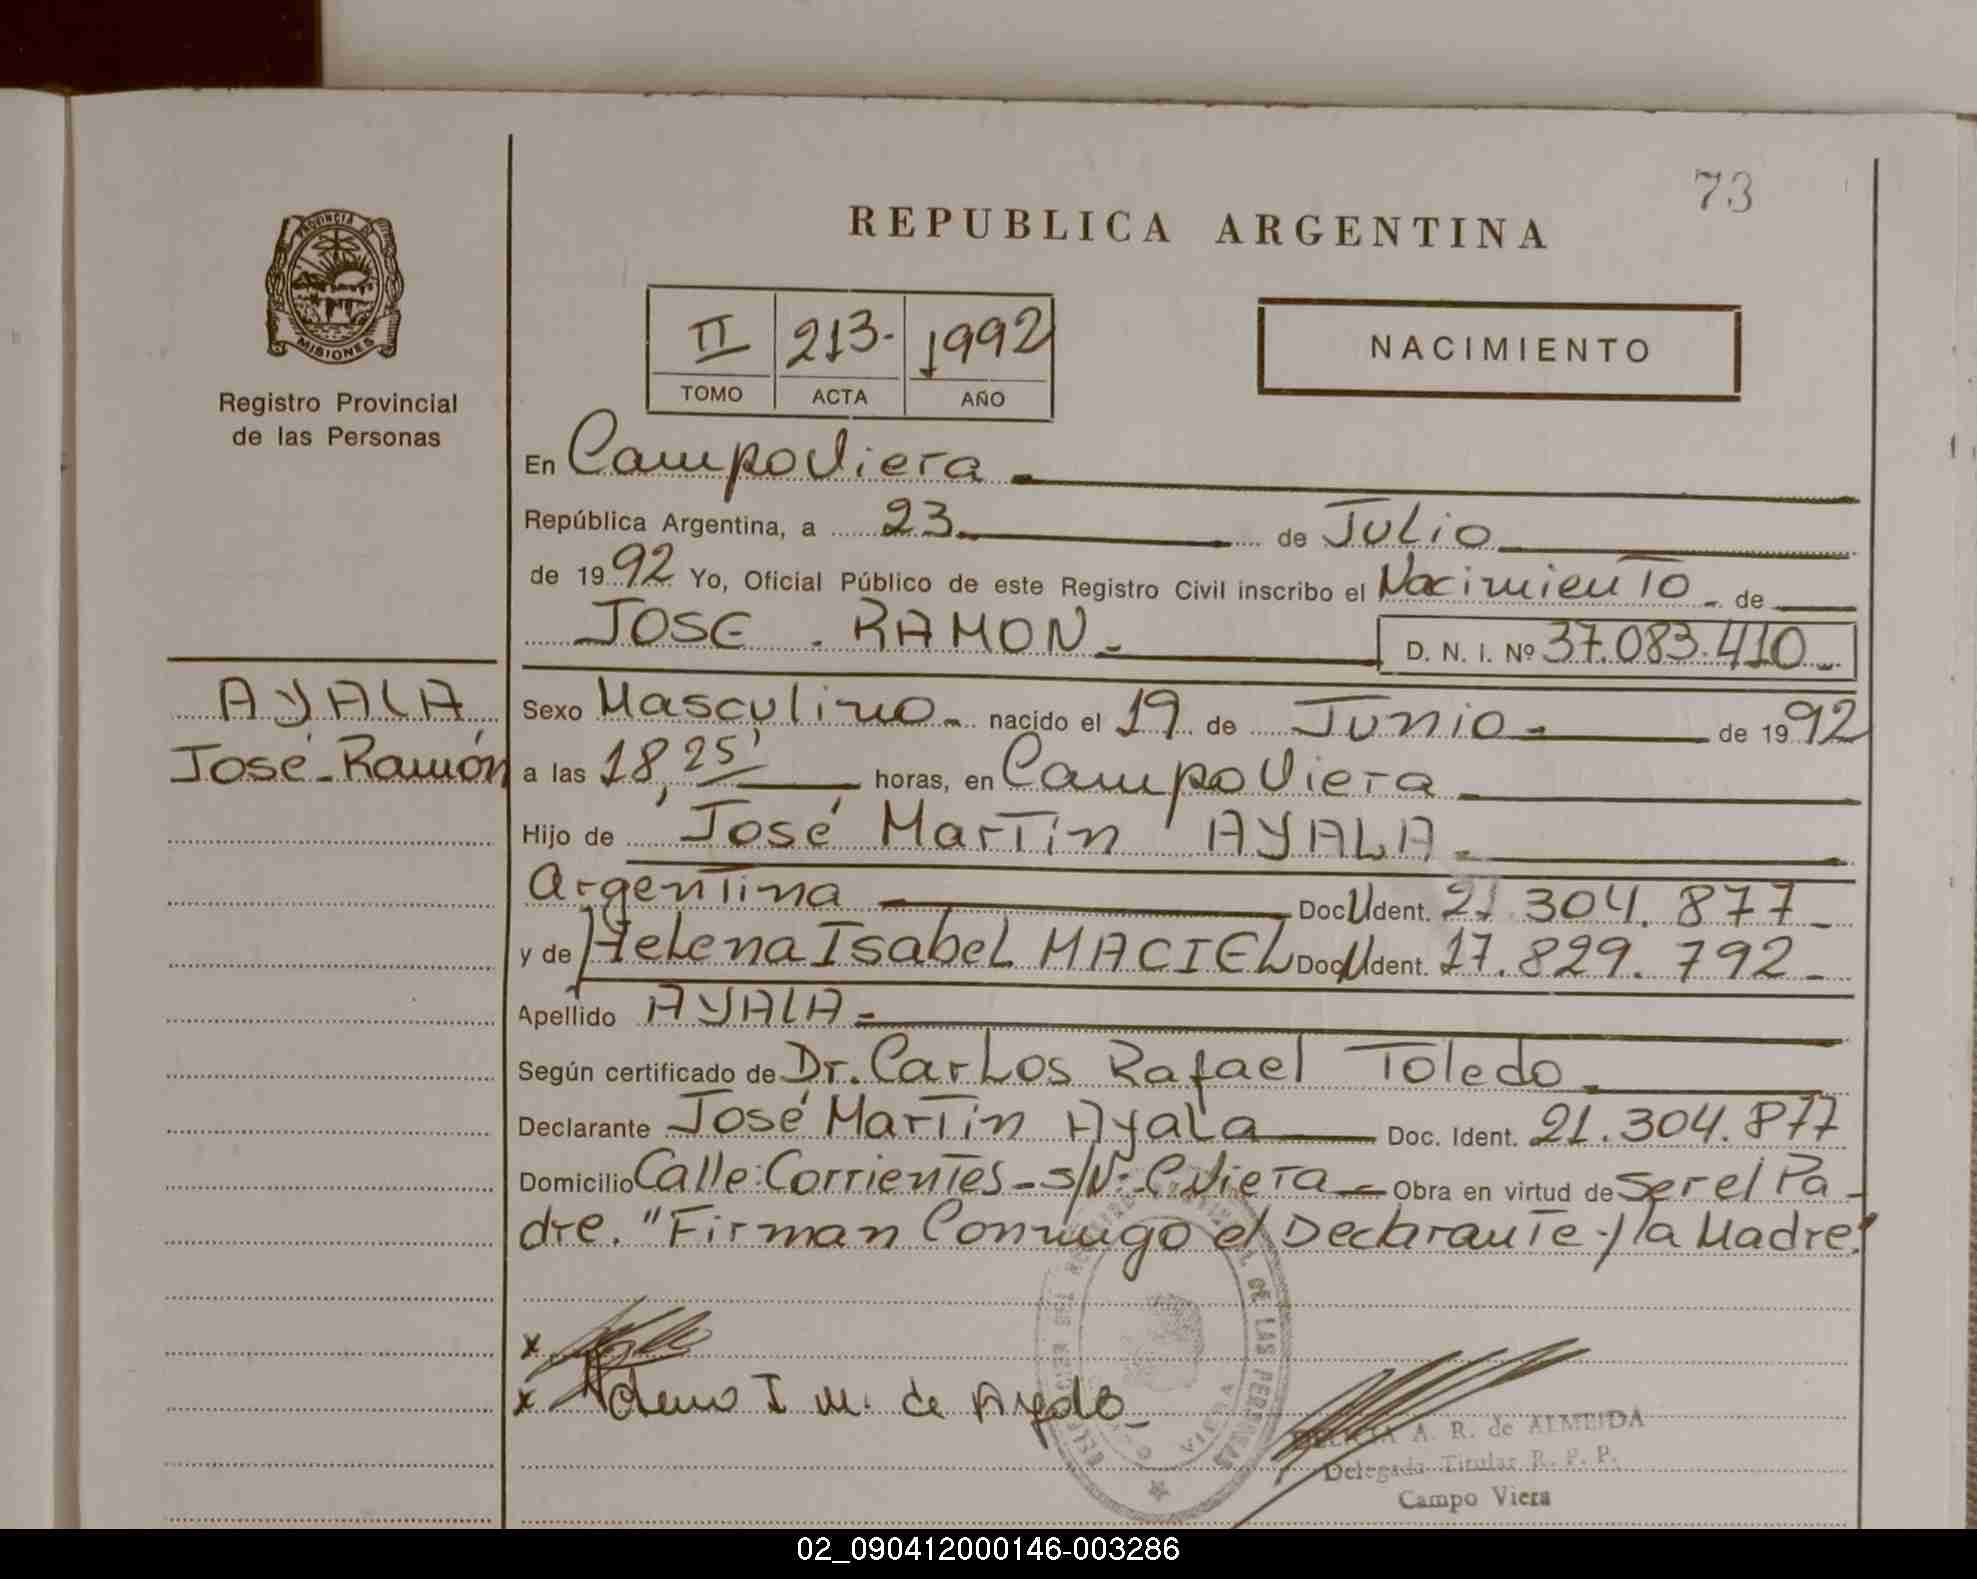 73
REPUBLICA ARGENTINA
PROVINCIA DE
MISIONES
Registro Provincial
de las Personas
II 213- 1992
TOMO ACTA AÑO
NACIMIENTO
En Campo Viera
República Argentina, a 23 de Julio
de 1992 Yo, Oficial Público de este Registro Civil inscribo el Nacimiento de
JOSE RAMON D. N. I. Nº 37.083.410
AYALA
José Ramón
Sexo Masculino nacido el 19 de Junio de 1992
a las 18,25' horas, en Campo Viera
Hijo de José Martín AYALA
Argentina Doc U Ident. 21.304.877
y de Helena Isabel MACIEL Doc U Ident. 17.829.792
Apellido AYALA
Según certificado de Dr. Carlos Rafael Toledo
Declarante José Martín Ayala Doc. Ident. 21.304.877
Domicilio Calle: Corrientes - S/N- C. Viera - Obra en virtud de ser el Pa-
dre. "Firman Conmigo el Declarante y la Madre."
x
x I M. de Ayala
DE LAS PERSONAS
VIERA
A. R. de ALMEIDA
Delegada Titular R. P. P.
Campo Viera
02_090412000146-003286